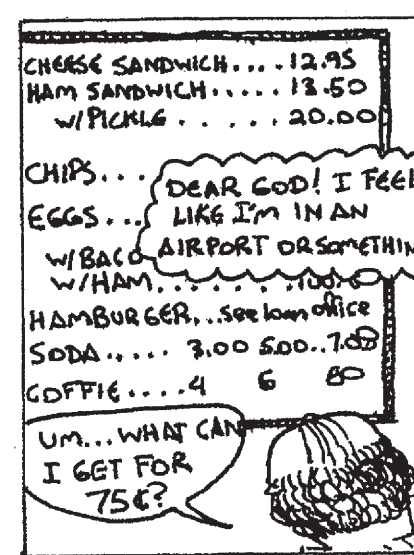 CHEESE SANDWICH.... 12.95
HAM SANDWICH..... 13.50
W/PICKLE ..... 20.00
CHIPS...
EGGS...
W/BACO
W/HAM.......
HAMBURGER...see loan office
SODA..... 3.00 5.00..7.00
COFFIE.... 4 6 80
DEAR GOD! I FEEL
LIKE I'M IN AN
AIRPORT OR SOMETHIN
UM... WHAT CAN
I GET FOR
75¢?